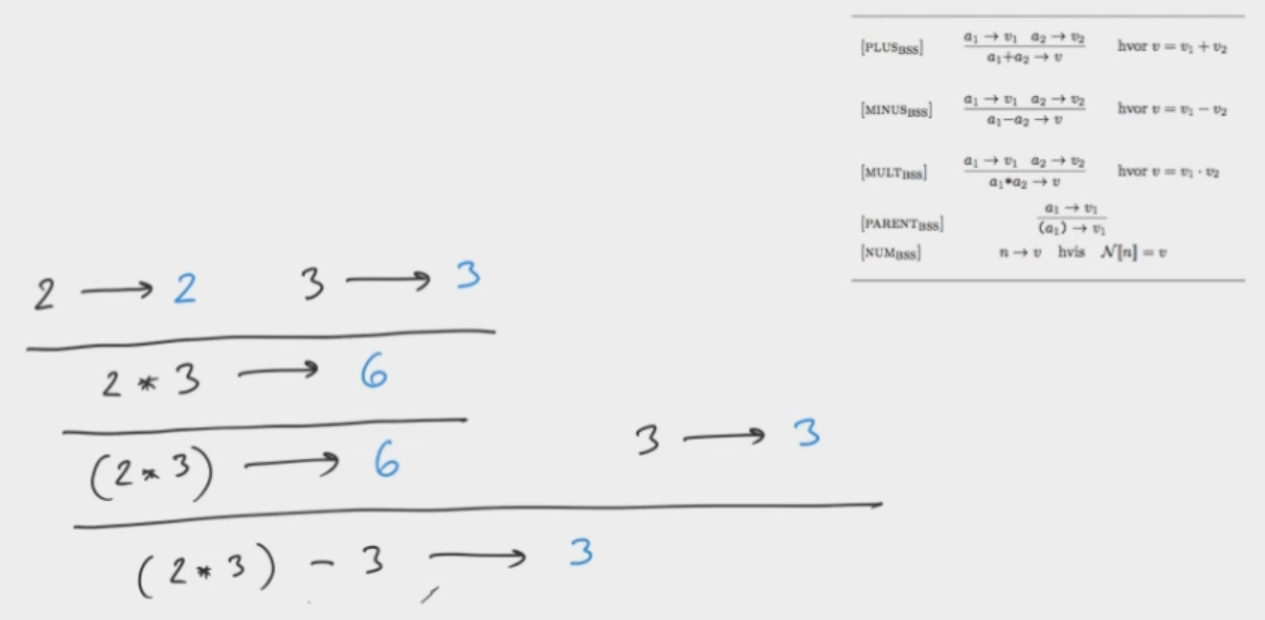 [PLUS_BSS] a₁ → v₁ a₂ → v₂ / a₁+a₂ → v hvor v = v₁ + v₂
[MINUS_BSS] a₁ → v₁ a₂ → v₂ / a₁−a₂ → v hvor v = v₁ − v₂
[MULT_BSS] a₁ → v₁ a₂ → v₂ / a₁*a₂ → v hvor v = v₁ · v₂
[PARENT_BSS] a₁ → v₁ / (a₁) → v₁
[NUM_BSS] n → v hvis 𝒩[n] = v
2 → 2 3 → 3
2 * 3 → 6
(2 * 3) → 6 3 → 3
(2 * 3) − 3 → 3